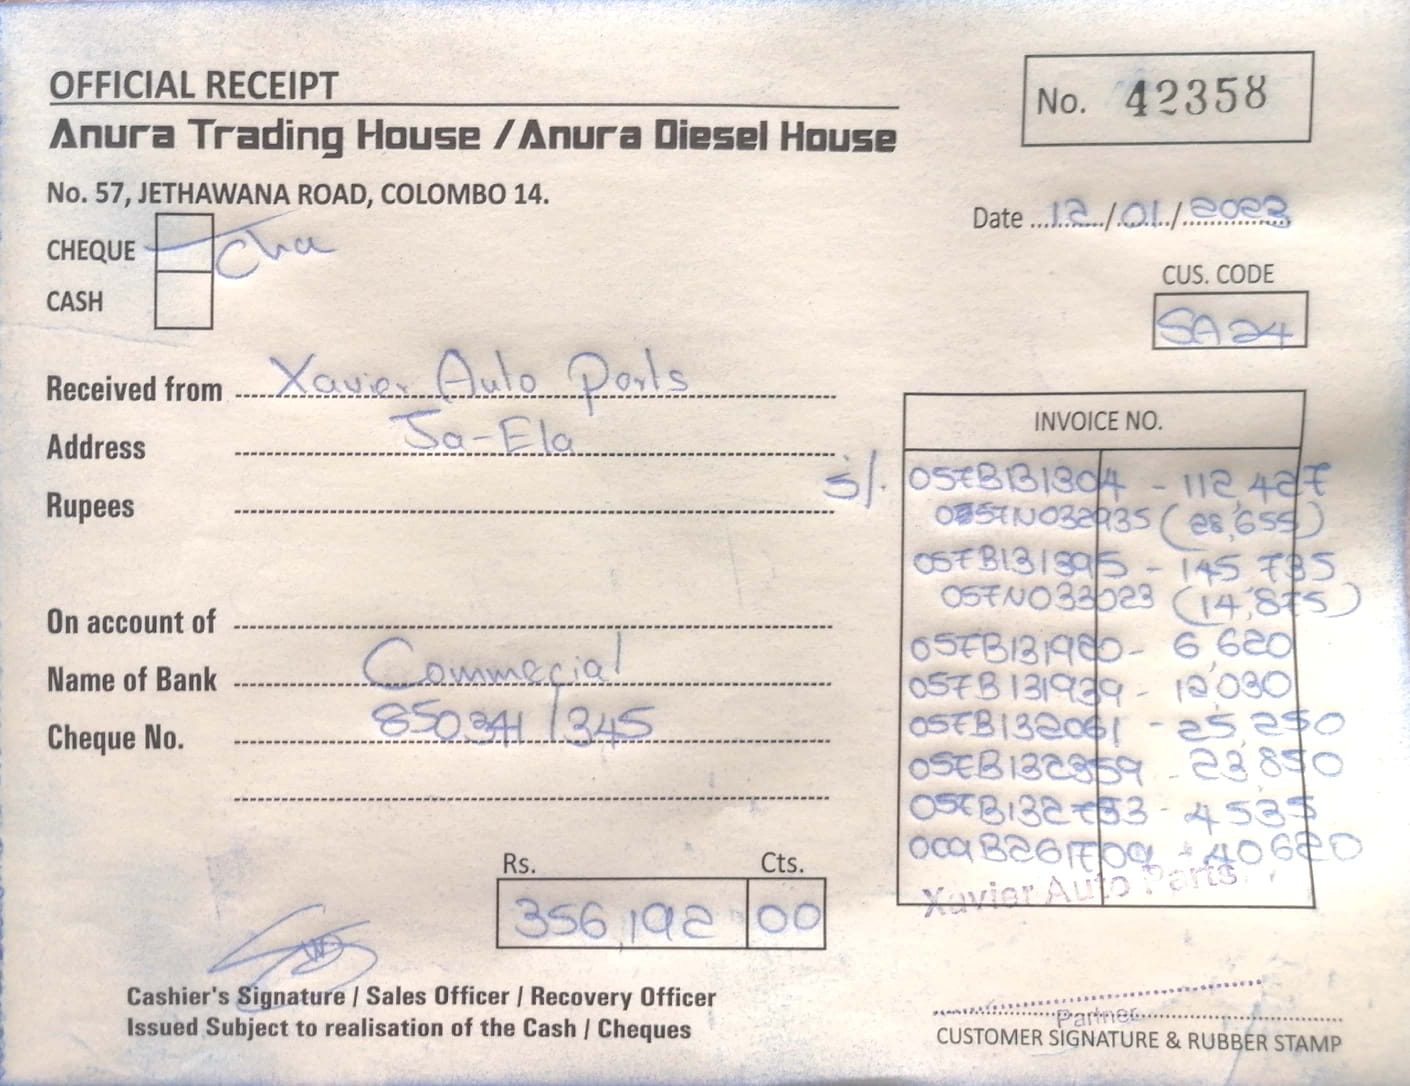 OFFICIAL RECEIPT
Anura Trading House / Anura Diesel House
No. 42358
No. 57, JETHAWANA ROAD, COLOMBO 14.
Date 12/01/2023
CHEQUE
CASH
CUS. CODE
SA24
Received from Xavier Auto Parts
Address Ja-Ela
Rupees
On account of
Name of Bank Commecial
Cheque No. 850341/345
INVOICE NO.
S/. 057B131304 - 112,427
057N032935 (28,655)
057B131395 - 145,735
057N033023 (14,875)
057B131980 - 6,620
057B131939 - 12,030
057B132061 - 25,250
057B132359 - 23,850
057B132733 - 4535
009B261709 - 40620
Xavier Auto Parts.
Rs. Cts.
356,192 00
Cashier's Signature / Sales Officer / Recovery Officer
Issued Subject to realisation of the Cash / Cheques
Partner
CUSTOMER SIGNATURE & RUBBER STAMP